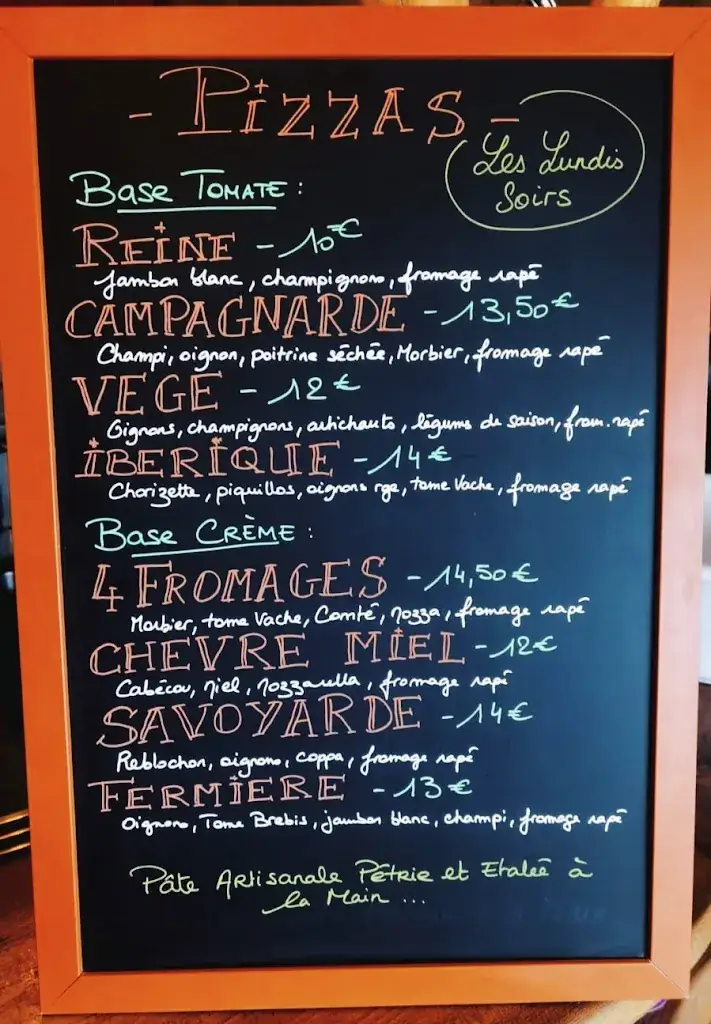 - PIZZAS -
Les Lundis
Soirs
Base TOMATE :
REINE - 10€
Jambon blanc, champignons, fromage rapé
CAMPAGNARDE - 13,50€
Champi, oignon, poitrine séchée, Morbier, fromage rapé
VEGE - 12€
Oignons, champignons, artichauts, légums de saison, from. rapé
IBERIQUE - 14€
Chorizette, piquillos, oignons rge, tome Vache, fromage rapé
Base CRÈME :
4 FROMAGES - 14,50€
Morbier, tome Vache, Comté, Mozza, fromage rapé
CHEVRE MIEL - 12€
Cabécou, Miel, Mozzarella, fromage rapé
SAVOYARDE - 14€
Reblochon, oignons, coppa, fromage rapé
FERMIERE - 13€
Oignons, Tome Brebis, jambon blanc, champi, fromage rapé
Pâte Artisanale Pétrie et Etalée à
la Main ...